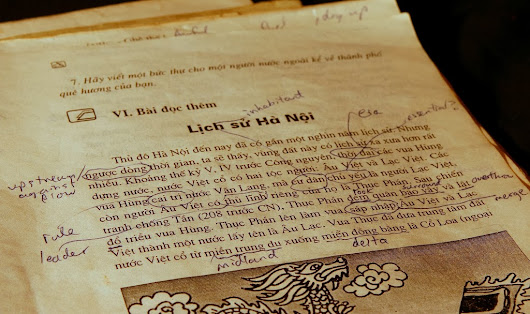 dry up
7. Hãy viết một bức thư cho một người nước ngoài kể về thành phố
quê hương của bạn.
VI. Bài đọc thêm
inhabitant
Lịch sử Hà Nội
else
essential?
Thủ đô Hà Nội đến nay đã có gần một nghìn năm lịch sử. Nhưng
ngược dòng thời gian, ta sẽ thấy, vùng đất này có lịch sử xa xưa hơn
upstream
against
flow
nhiều. Khoảng thế kỷ V, IV trước Công nguyên, thời đại các vua Hùng
dựng nước, nước Việt cổ có hai tộc người: Âu Việt và Lạc Việt. Các
vua Hùng cai trị nước Văn Lang, mà cư dân chủ yếu là người Lạc Việt,
còn người Âu Việt có thủ lĩnh riêng của họ là Thục Phán. Sau chiến
tranh chống Tần (208 trước CN), Thục Phán đem quân vào và lật
overthrow
rule
leader
đổ triều vua Hùng. Thục Phán lên làm vua, sáp nhập Âu Việt và Lạc
merge
Việt thành một nước lấy tên là Âu Lạc. Vua Thục đã đưa trung tâm đất
nước Việt cổ từ miền trung du xuống miền đồng bằng là Cổ Loa (ngoại
midland
delta